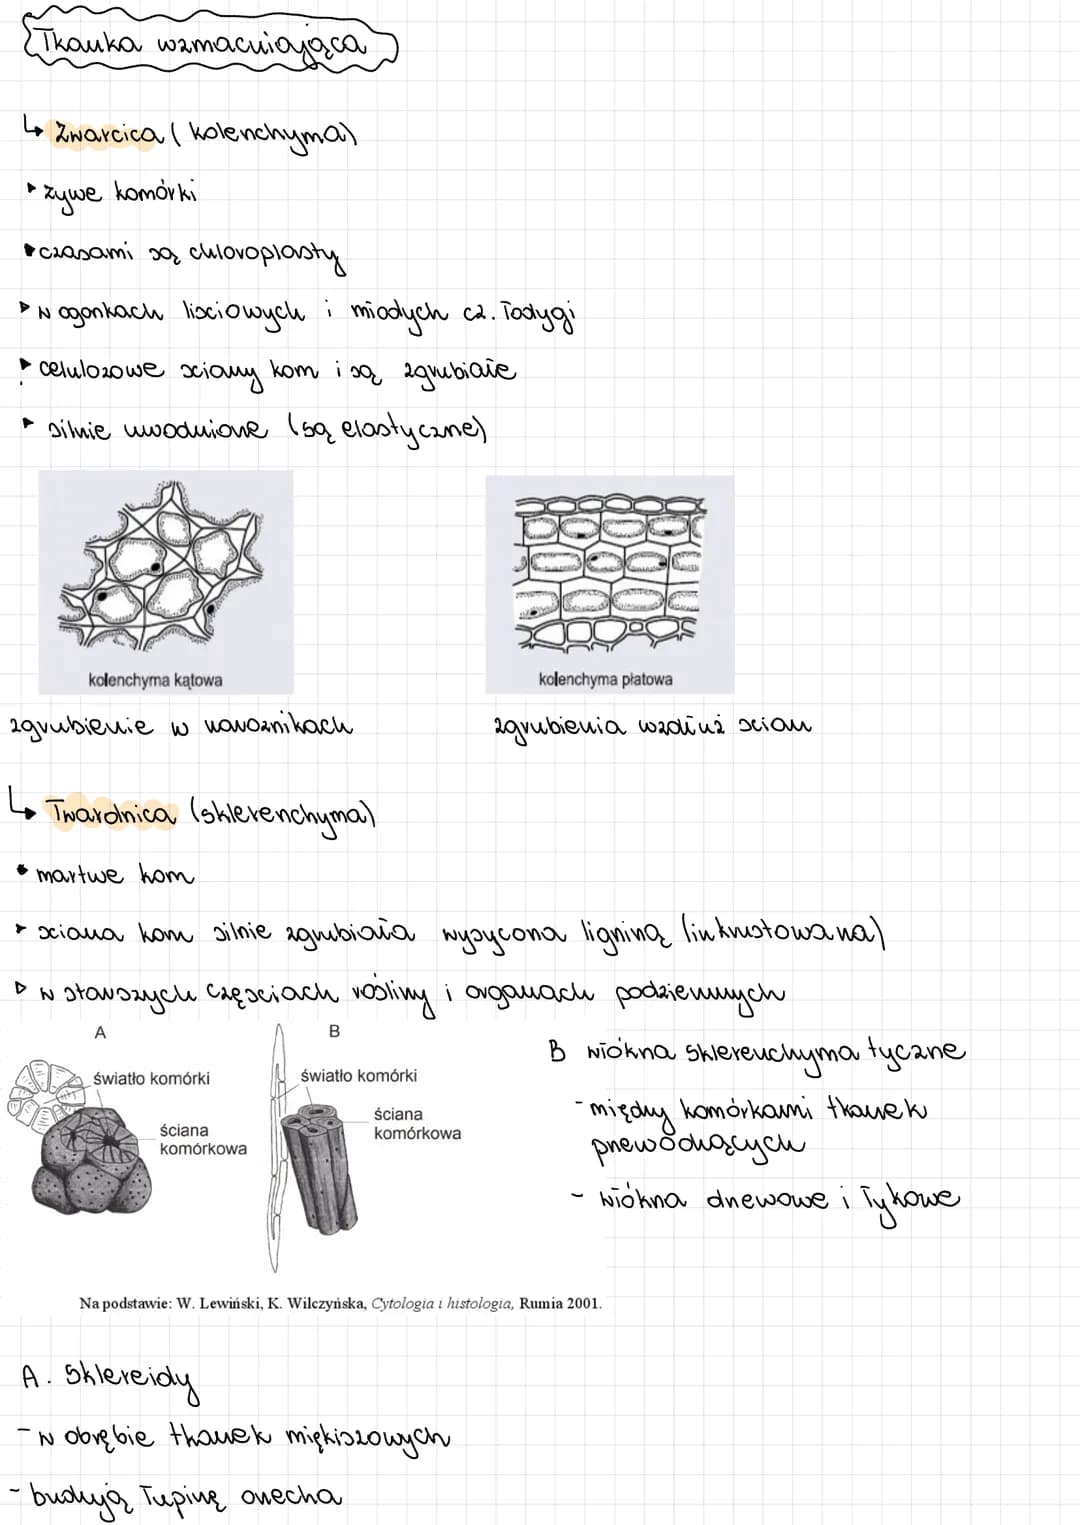 Tkanka wzmacniająca
↳ Zwarcica (kolenchyma)
‣ żywe komórki
‣ czasami są chloroplasty
▹ w ogonkach liściowych i młodych cz. łodygi
‣ celulozowe ściany kom i są zgrubiałe
‣ silnie uwodnione (są elastyczne)
kolenchyma kątowa
kolenchyma płatowa
zgrubienie w narożnikach
zgrubienia wzdłuż ścian
↳ Twardnica (sklerenchyma)
• martwe kom
‣ ściana kom silnie zgrubiała wysycona ligniną (inkrustowana)
▹ w starszych częściach rośliny i organach podziemnych
A
B
światło komórki
światło komórki
ściana
komórkowa
ściana
komórkowa
B włókna sklerenchyma tyczne
- między komórkami tkanek
przewodzących
- włókna drzewowe i łykowe
Na podstawie: W. Lewiński, K. Wilczyńska, Cytologia i histologia, Rumia 2001.
A. Sklereidy
- w obrębie tkanek miękiszowych
- budują łupinę orzecha